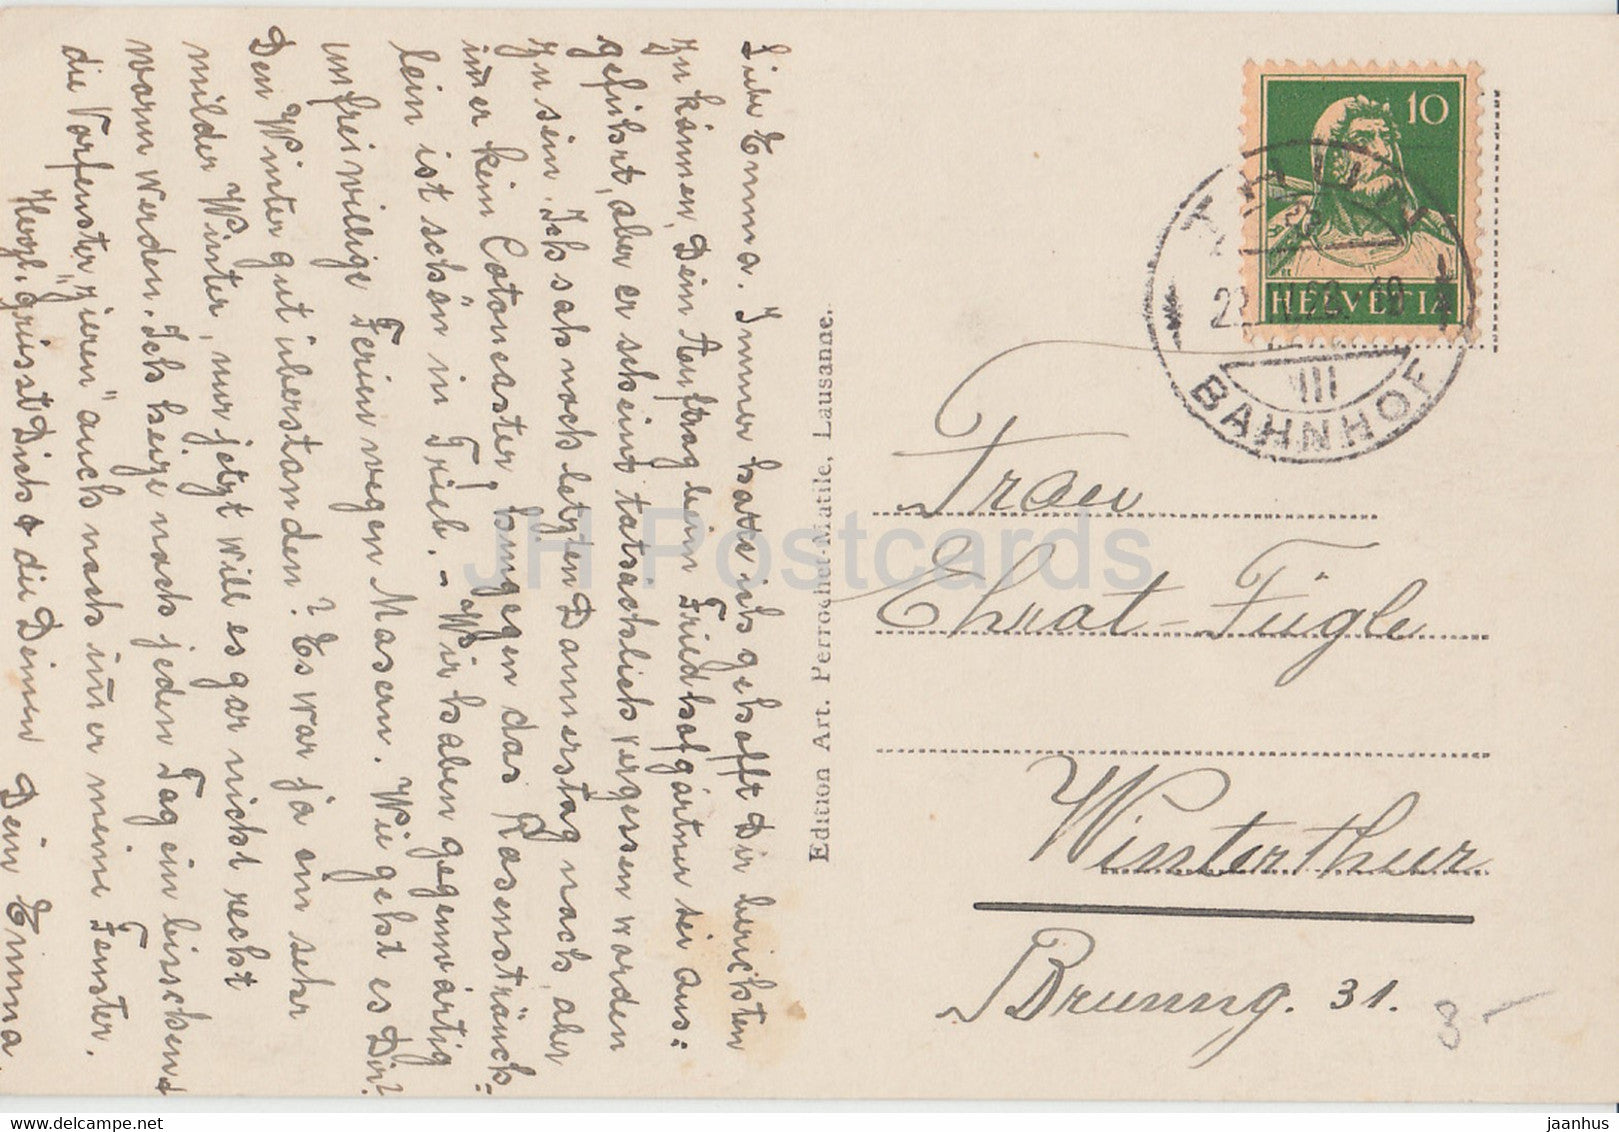 Liebe Emma. Immer hatte ich gehofft Dir berichten
zu können, Dein Auftrag beim Friedhofgärtner sei aus=
geführt, aber er scheint tatsächlich vergessen worden
zu sein. Ich sah noch letzten Donnerstag nach, aber
im̄er kein Cotoneaster, hingegen das Rosensträuch=
lein ist schön in Trieb. – Wir haben gegenwärtig
unfreiwillige Ferien wegen Masern. Wie geht es Dir?
Den Winter gut überstanden? Es war ja ein sehr
milder Winter, nur jetzt will es gar nicht recht
warm werden. Ich heize noch jeden Tag ein bisschen &
die Vorfenster "zieren" auch noch im̄er meine Fenster.
Herzl. grüsst Dich & die Deinen Dein Emma.
Edition Art. Perrochet-Matile, Lausanne.
10
HELVETIA
THUN
BAHNHOF
Frau
Ehrat-Fügle
Winterthur
Brunng. 31.
JH Postcards
jaanhus
delcampe.net